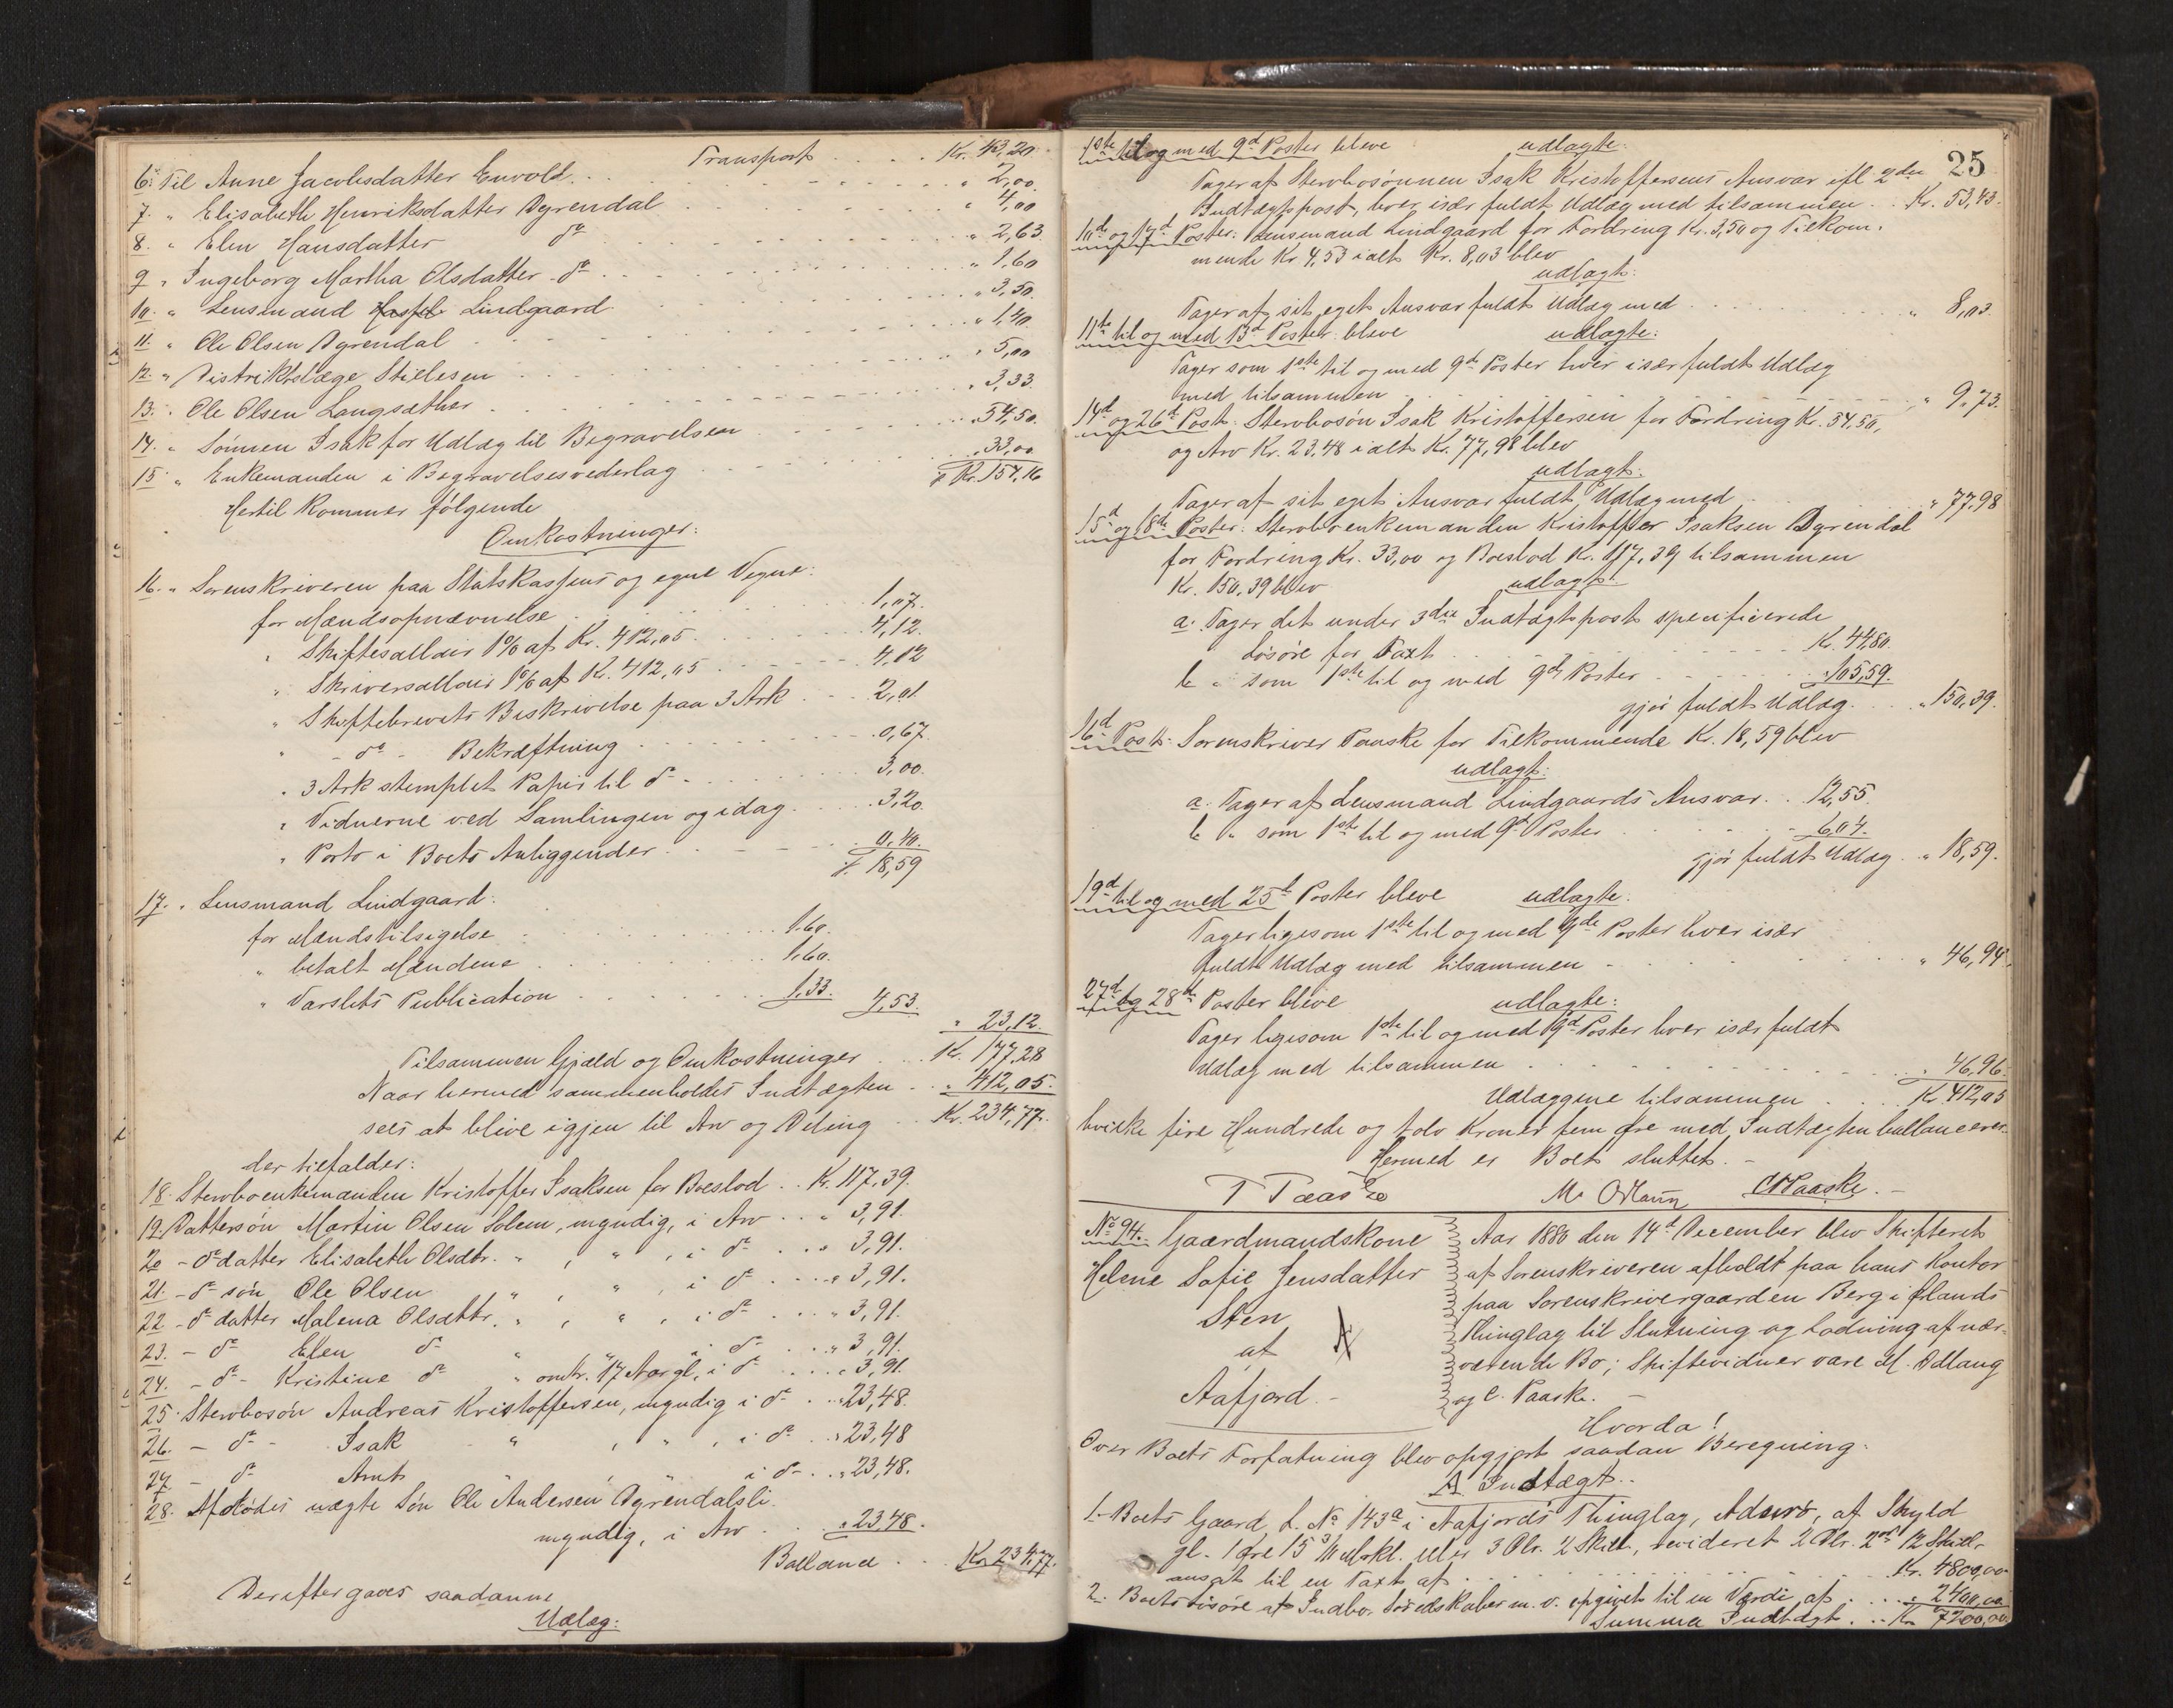 Transport . . . . Kr. 43,20.
6. Til Anne Jacobsdatter Envold . . . " 2,00.
7. " Elisabeth Henriksdatter Dyrendal . . . " 4,00
8. " Elen Hansdatter do . . . " 2,63
9 " Ingeborg Martha Olsdatter do . . . " 1,60
10. " Lensmand Lindgaard . . . " 3,50.
11. " Ole Olsen Dyrendal . . . " 1,40.
12. " Distriktslæge Stielesen . . . " 5,00
13. " Ole Olsen Langsæther . . . " 3,33.
14. " Sønnen Isak for Udlæg til Begravelsen . . . " 54,50.
15 " Enkemanden i Begravelsesvederlag . . . " 33,00.
Kr. 154,16
Hertil kommer følgende
Omkostninger:
16. " Sorenskriveren paa Statskassens og egne Vegne:
for Mændsopnævnelse . . . 1,07.
" Skiftesallair 1% af Kr. 412,05 . . . 4,12.
" Skriversallair 1% af Kr. 412,05 . . . 4,12
" Skiftebrevets Beskrivelse paa 3 Ark . . . 2,01.
" - do - Bekræftning . . . 0,67.
" 3 Ark stemplet Papir til do . . . 3,00.
" Vidnerne ved Samlingen og idag . . . 3,20.
" Porto i Boets Anliggender . . . 0,40.
18,59
17. " Lensmand Lindgaard:
for Mændstilsigelse . . . 1.60.
" betalt Mændene . . . 1.60.
" Varslets Publication . . . 1,33. 4,53.
" 23,12.
Tilsammen Gjæld og Omkostninger . . . Kr. 177,28
Naar hermed sammenholdes Indtægten . . " 412,05.
sees at blive igjen til Arv og Deling . . Kr. 234,77.
der tilfalder:
18. Stervboenkemanden Kristoffer Isaksen for Boeslod . . Kr. 117,39.
19. Dattersøn Martin Olsen Solem, myndig, i Arv . . " 3,91.
20 - do datter Elisabeth Olsdtr. " , " , i do . . . " 3,91.
21. - do søn Ole Olsen " , " , i do . . . " 3,91.
22 - do datter Malena Olsdttr. " , " , i do . . . " 3,91.
23. - do Elen do " " i do . . . " 3,91.
24. - do - Kristine do " omtr. 17 Aar gl, i do . . . " 3,91.
25. Stervbosøn Andreas Kristoffersen, myndig i do . . " 23,48.
26. - do - Isak " , " , i do . . " 23,48
27. - do Arnt " , " i do . . . " 23,48.
28. Afdødes uægte Søn Ole Andersen Dyrendalsli.
myndig, i Arv . . . " 23,48.
Ballance . . . Kr. 234,77.
Derefter gaves saadanne
Udlæg:
25
1ste til og med 9d Poster bleve udlagte:
Tager af Stervbosønnen Isak Kristoffersens Ansvar ifl 2den
Indtægtspost, hver især fuldt Udlæg med tilsammen . . Kr. 53,43.
10d og 17d Poster: Lensmand Lindgaard for Fordring Kr. 3,50 og Tilkom-
mende Kr. 4,53 ialt Kr. 8,03 blev
udlagt:
Tager af sit eget Ansvar fuldt Udlæg med . . . " 8,03.
11te til og med 13d Poster bleve udlagte:
Tager som 1ste til og med 9d Poster hver især fuldt Udlæg
med tilsammen . . . " 9.73.
14d og 26d Post: Stervbosøn Isak Kristoffersen for Fordring Kr. 54,50,
og Arv Kr. 23.48 ialt Kr. 77,98 blev
udlagt:
Tager af sit eget Ansvar fuldt Udlæg med . . . " 77,98
15d og 18de Poster: Stervboenkemanden Kristoffer Isaksen Dyrendal
for Fordring Kr. 33,00 og Boeslod Kr. 117,39 tilsammen
Kr. 150,39 blev udlagt:
a. Tager det under 3die Indtægtspost specificerede
Løsøre for Taxt . . . Kr. 44,80.
b " som 1ste til og med 9de Poster . . . " 105,59.
gjør fuldt Udlæg. . . " 150,39.
16d Post: Sorenskriver Paaske for Tilkommende Kr. 18,59 blev
udlagt:
a. Tager af Lensmand Lindgaards Ansvar . . 12,55.
b " som 1ste til og med 9d Poster . . . 6,04.
gjør fuldt Udlæg . . " 18,59.
19d til og med 25d Poster bleve udlagte:
Tager ligesom 1ste til og med 9de Poster hver især
fuldt Udlæg med tilsammen . . . " 46,94.
27d og 28de Poster bleve udlagte:
Tager ligesom 1ste til og med 9d Poster hver især fuldt
Udlæg med tilsammen . . . " 46,96.
Udlæggene tilsammen . . . Kr. 412,05
hvilke fire Hundrede og tolv Kroner fem Øre med Indtægten ballancerer.
Hermed er Boet sluttet. -
T Paaske M. Odlaug C Paaske. -
No 94. Gaardmandskone
Helene Sofie Jensdatter
Sten
at
Aafjord. -
Aar 1880 den 14d December blev Skifteret
af Sorenskriveren afholdt paa hans Kontor
paa Sorenskrivergaarden Berg i Ørlands
Thinglag til Slutning og Lodning af nær-
værende Bo; Skiftevidner vare M. Odlaug
og C. Paaske. -
Hvorda!
Over Boets Forfatning blev opgjort saadan Beregning:
A. Indtægt.
1. Boets Gaard L. No 143a i Aafjords Thinglag, , af Skyld
gl. 1 Øre 15 3/11 Mrkl. eller 3 Dlr. 2 Skill., revideret 2 Dlr. 2 ort 12 Skill.
ansat til en Taxt af . . . Kr. 4800,00
2. Boets Løsøre af Indbo, Søredskaber m. v. opgivet til en Værdi af . . . " 2400,00
Summa Indtægt . . . Kr 7200,00